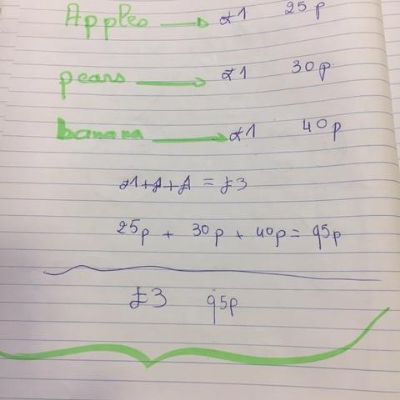 Apples → £1 25p
pears → £1 30p
banana → £1 40p
£1+£+£ = £3
25p + 30p + 40p = 95p
£3 95p